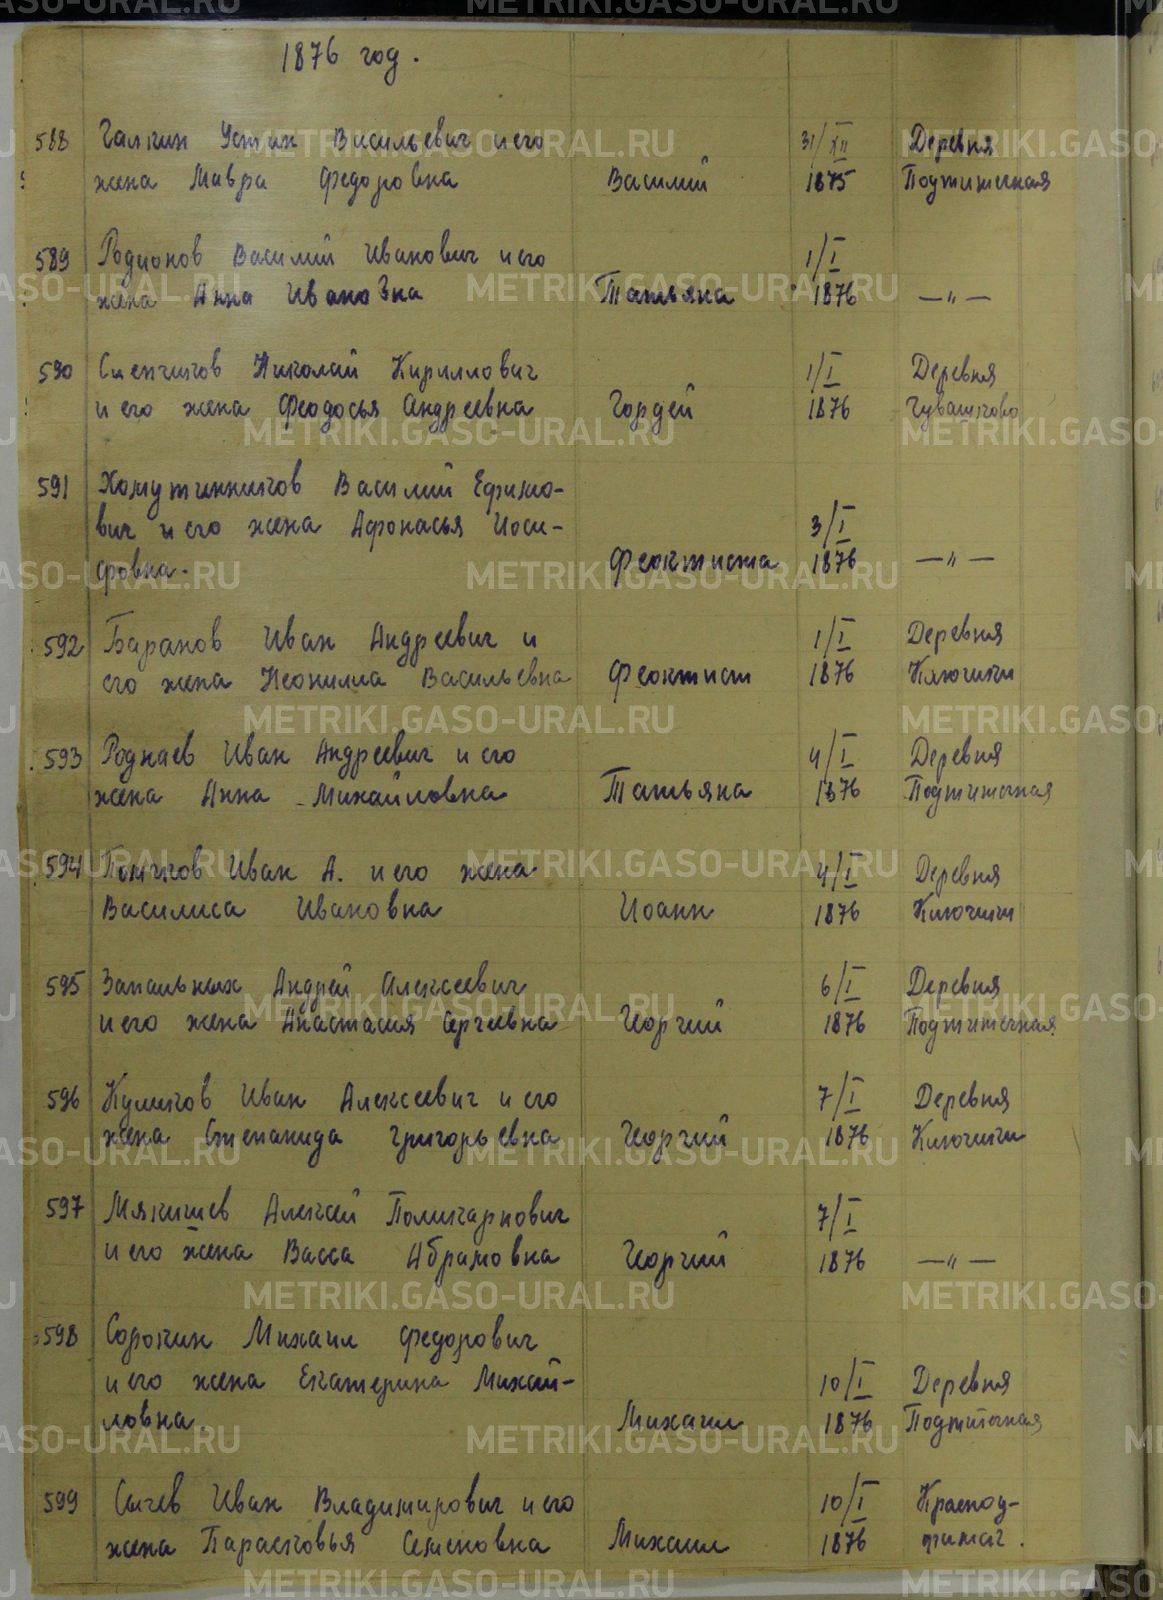 1876 год.
588 Галкин Устин Васильевич и его 31/XII Деревня
жена Мавра Федоровна Василий 1875 Подтитечная
589 Родионов Василий Иванович и его 1/I
жена Анна Ивановна Татьяна 1876 — " —
590 Николай Кириллович 1/I Деревня
и его жена Феодосья Андреевна Гордей 1876 Чувашково
591 Хомутинников Василий Ефимо-
вич и его жена Афонасья Иоси- 3/I
фовна. Феоктиста 1876 — " —
592 Баранов Иван Андреевич и 1/I Деревня
его жена Неонилла Васильевна Феоктист 1876 Ключики
593 Роднаев Иван Андреевич и его 4/I Деревня
жена Анна Михайловна Татьяна 1876 Подтитечная
594 Иван А. и его жена 4/I Деревня
Василиса Ивановна Иоанн 1876 Ключики
595 Запальных Андрей Алексеевич 6/I Деревня
и его жена Анастасия Сергеевна Георгий 1876 Подтитечная
596 Куликов Иван Алексеевич и его 7/I Деревня
жена Степанида Григорьевна Георгий 1876 Ключики
597 Мякишев Алексей Поликарпович 7/I
и его жена Васса Абрамовна Георгий 1876 — " —
598 Сорокин Михаил Федорович
и его жена Екатерина Михай- 10/I Деревня
ловна. Михаил 1876 Подтитечная
599 Сычев Иван Владимирович и его 10/I Красноу-
жена Парасковья Семеновна Михаил 1876 фимск.
METRIKI.GASO-URAL.RU